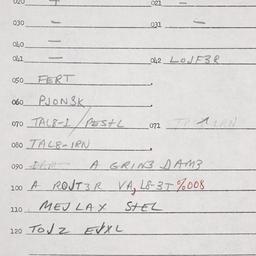 020 – 021 –
030 – 031 –
040 –
041 – 042 LOJF3R
050 FERT
060 PJON3K
070 TAL8-I / PESTL 071
080 JAL8-IRN
090 A GRIN3 DAM3
100 A ROJT3R VA, L8-3T %008
110 MEJLAX STEL
120 TOJZ EJXL